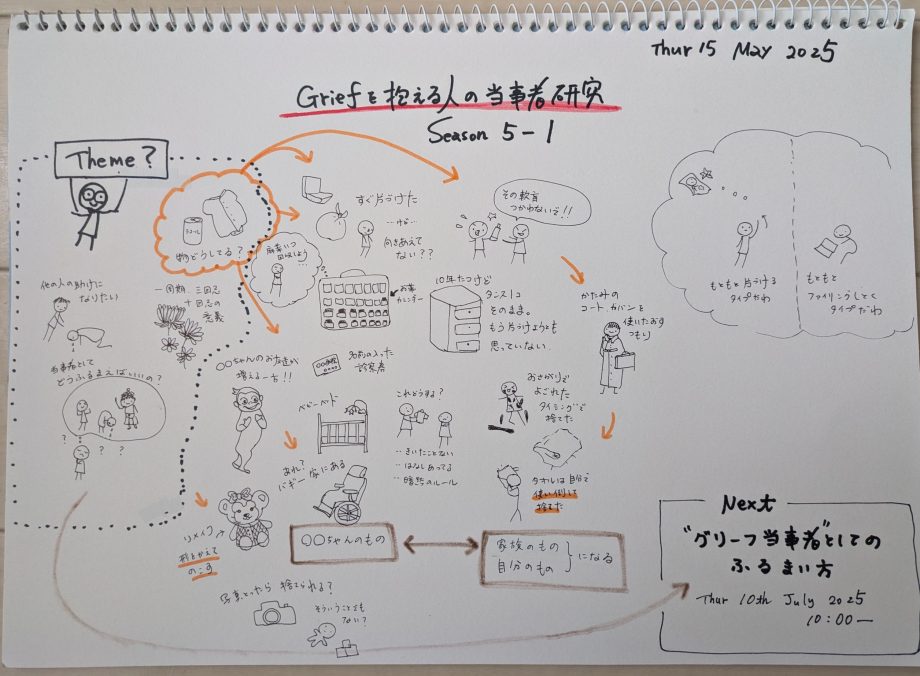 Thur 15 May 2025
Griefを抱える人の当事者研究
Season 5-1
Theme?
物どうしてる?
他の人の助けに
なりたい
一周期、三回忌
十回忌の
意義
当事者として
どうふるまえばいいの?
? ? ?
すぐ片づけた
…けど…
向きあえて
ない??
麻薬いつ
回収しよう
お薬
カレンダー
その軟膏
つかわないで!!
10年たつけど
タンス1コ
そのまま。
もう片づけようとも
思っていない
かたみの
コート、カバンを
使いたおす
つもり
もともと片づける
タイプだわ
もともと
ファイリングしとく
タイプだわ
〇〇ちゃんのお友達が
増える一方!!
名前の入った
診察券
ベビーベッド
これどうする?
…きいたことない
…はなしあってる
…暗黙のルール
おさがりで
よごれた
タイミングで
捨てた
あれ?
バギー家にある
タオルは自分で
使い倒して
捨てた
リメイク
形をかえて
のこす
〇〇ちゃんのもの
家族のもの
自分のもの
になる
写真とったら捨てられる?
そういうことでも
ない?
Next
"グリーフ当事者"としての
ふるまい方
Thur 10th July 2025
10:00―